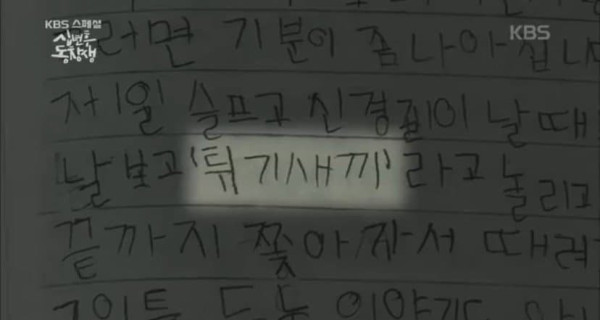 KBS 스페셜
십년후
동창생
KBS
러면 기분이 좀 나아집니
제일 슬프고 신경질이 날 때
날 보고 '튀기새끼' 라고 놀리고
끝까지 쫓아가서 때려